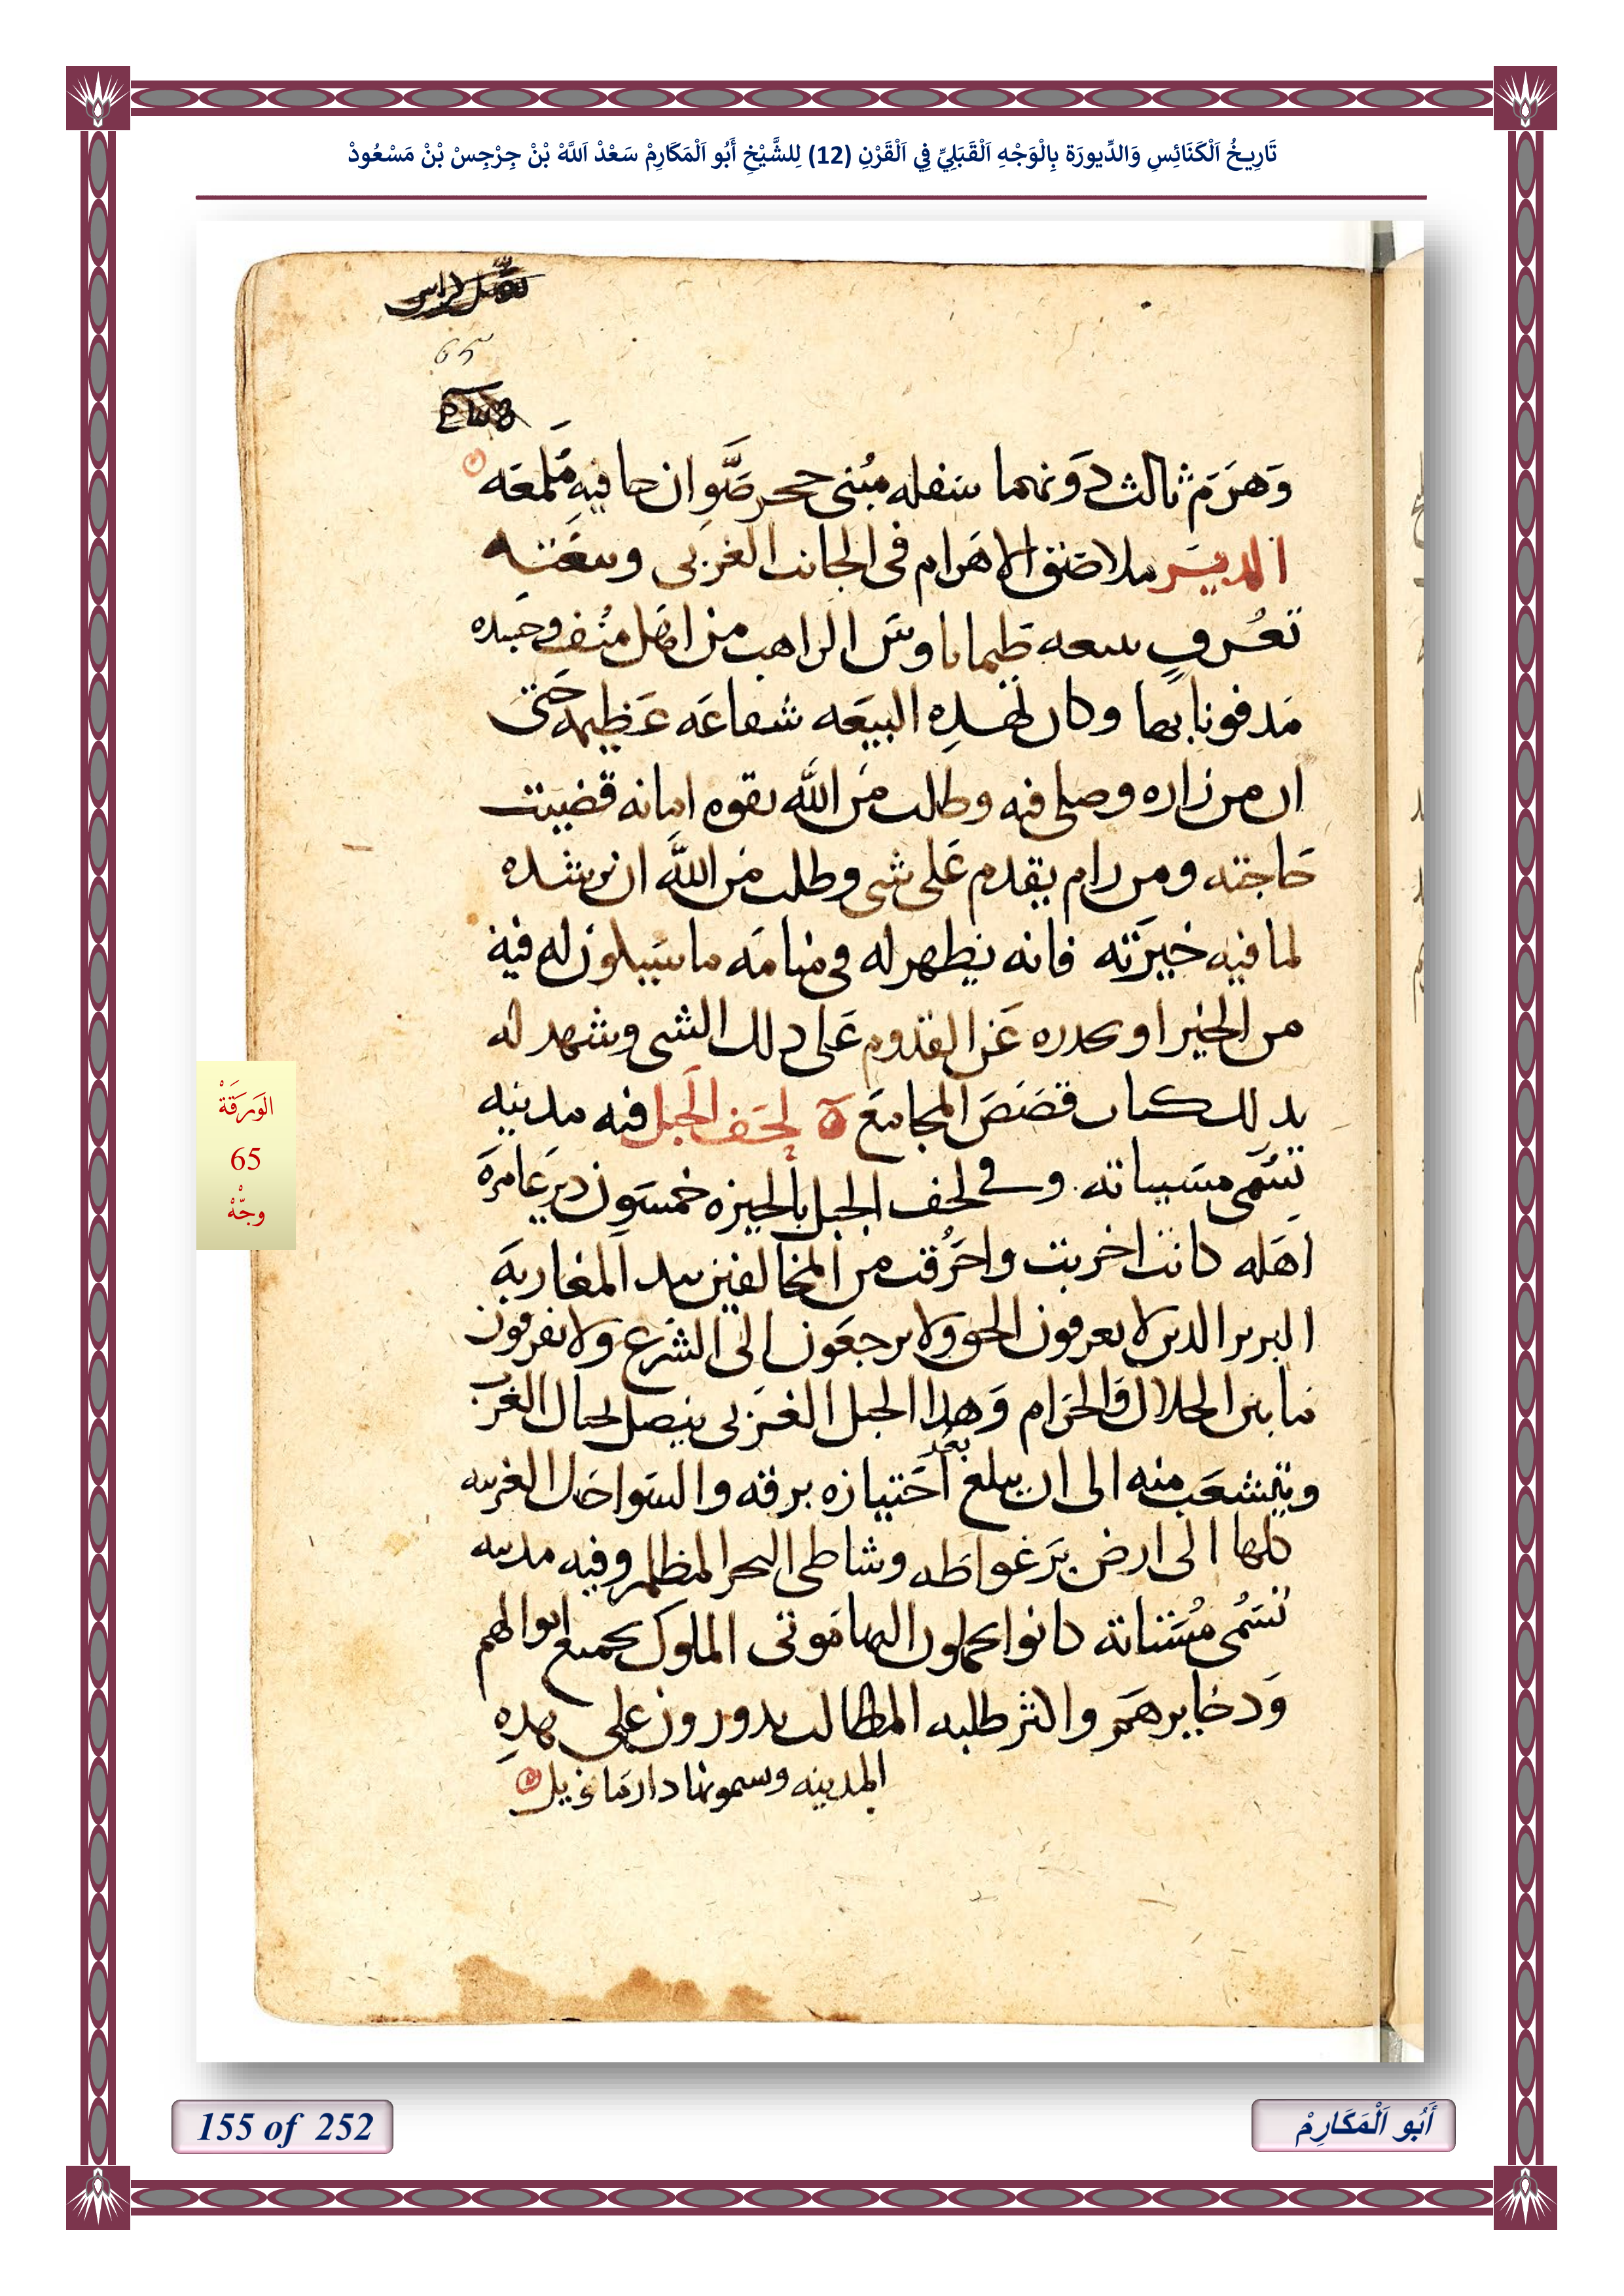 تَارِيخُ اَلْكَنَائِسِ وَالدِّيورَة بِالْوَجْهِ اَلْقَبَلِيِّ فِي اَلْقَرْنِ (12) لِلشَّيْخِ أَبُو اَلْمَكَارِمْ سَعْدْ اَللَّهْ بْنْ جِرْجِسْ بْنْ مَسْعُودْ
65
وَهَرَم ثالث دَونهما سفله مبُنى حجر صَّوِان جافيه مَّلمعَه
الديَر ملاصَق الاهَرام فى الجانب الغربى وبيعَته
تعُرف ببيعه طيماناوسَ الراهب من اهَل منُف وجَسده
مَدفونا بها وكان لهَدِه البيعَه شفاعَه عَظيمه حَتى
ان من زاره وصلى فيه وطلب مَن الله بقوه امانه قضيت
حَاجته ومن رام يقدم عَلى شى وطلب مَن الله ان يرشده
لما فيه خيَرته فانه يظهر له فى منامَه ما سَيكون له فيه
من الخير او يحدره عَن القدوم عَلى دلك الشى وشهد له
بدلك كتاب قصَصَ المجامعَ لحَف الجَبل فيه مدينه
تسَمى مسَيباته وفى لحف الجبل بالجيزه خمسَون ديرَ عَامرَة
اهَله كانت اخربت واحَرُقت من المخالفين بيد المغَاربهَ
البربر الدين لا يعرفون الحق ولا يرجعَون الى الشرَع ولا يفرقون
ما بين الحلال والحَرام وَهدا الجبل الغَربى يتصل بجبال الغرَب
ويتشعَب منه الى ان يبلغ بعُد اجَتيازه برقه والسَواحَل الغربيه
كلها الى ارض برَغواطَه وشاطى البحر المظلم وفيه مدينه
تسَمُى مُسَتناته كانوا يحملون اليها مَوتى الملوك بجميع اموالهم
وَدخايرهَم واكثر طلبه المطالب يدورون على هدِه
المدينه وسموِنها دار مَا فريك
الوَرَقَةْ
65
وجْهْ
155 of 252
أَبُو اَلْمَكَارِمْ